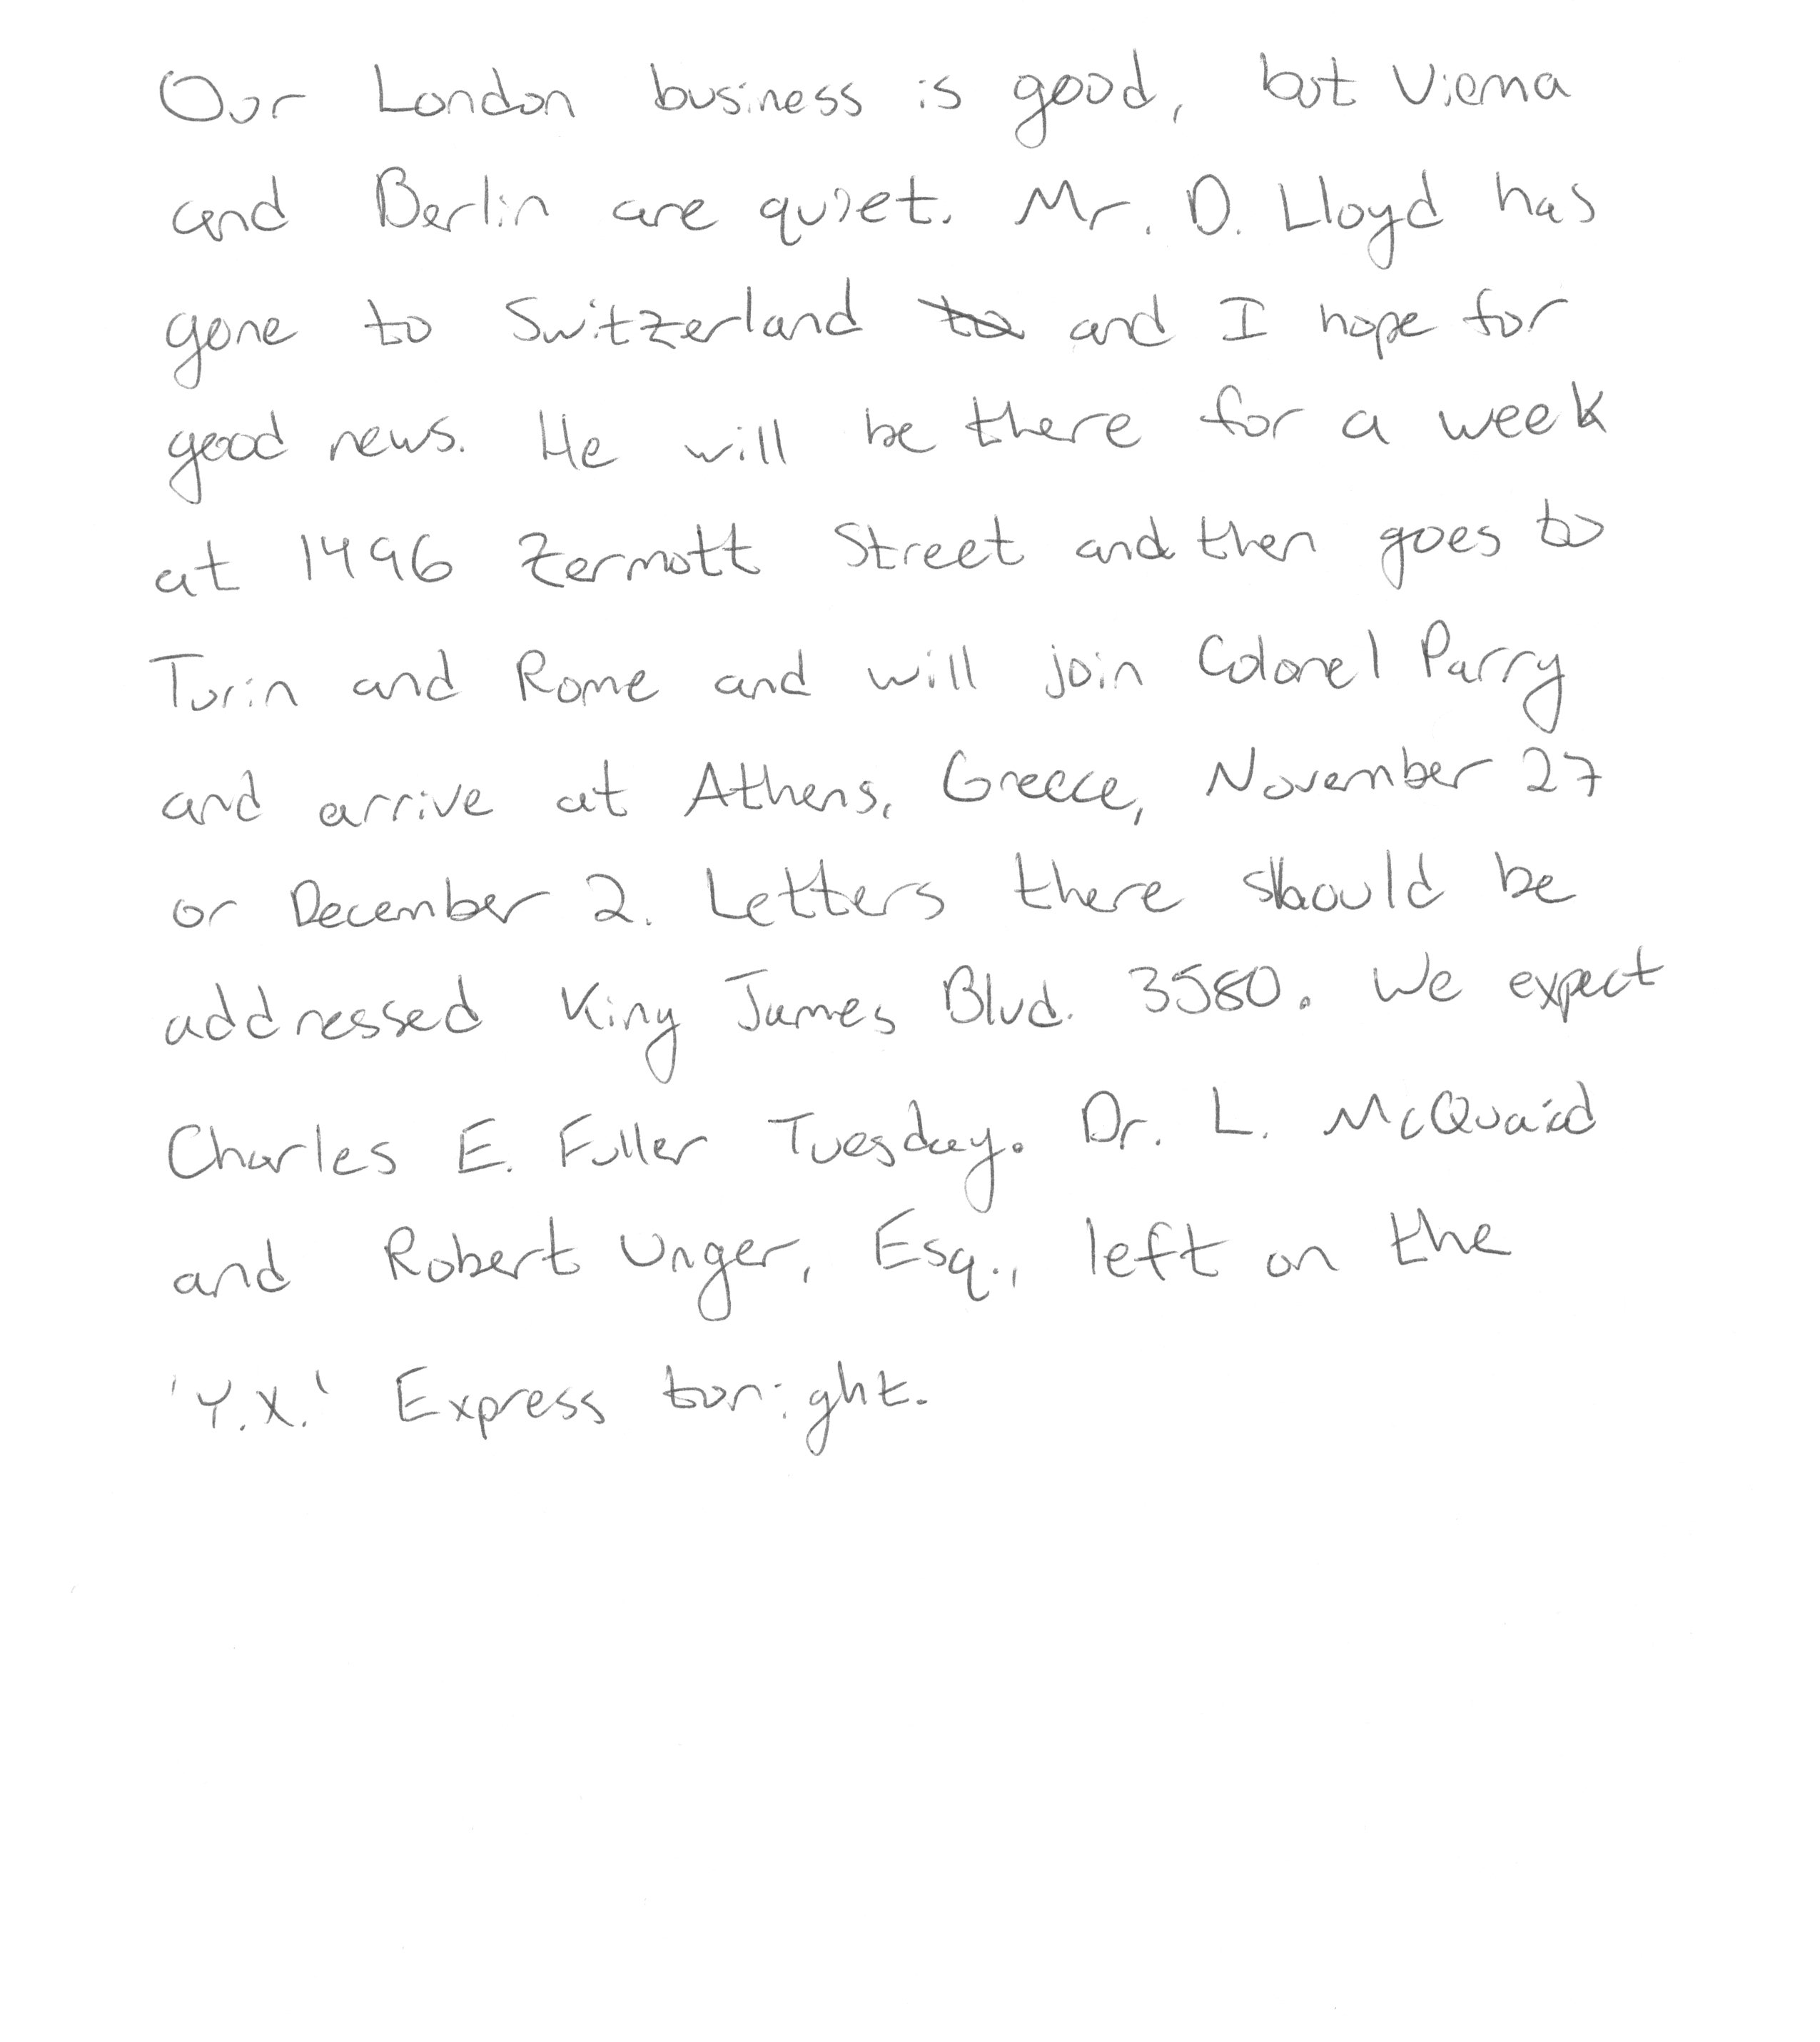 Our London business is good, but Vienna
and Berlin are quiet. Mr. D. Lloyd has
gone to Switzerland to and I hope for
good news. He will be there for a week
at 1496 Zermott Street and then goes to
Turin and Rome and will join Colonel Parry
and arrive at Athens, Greece, November 27
or December 2. Letters there should be
addressed King James Blvd. 3580. We expect
Charles E. Fuller Tuesday. Dr. L. McQuaid
and Robert Unger, Esq., left on the
'Y.X.' Express tonight.